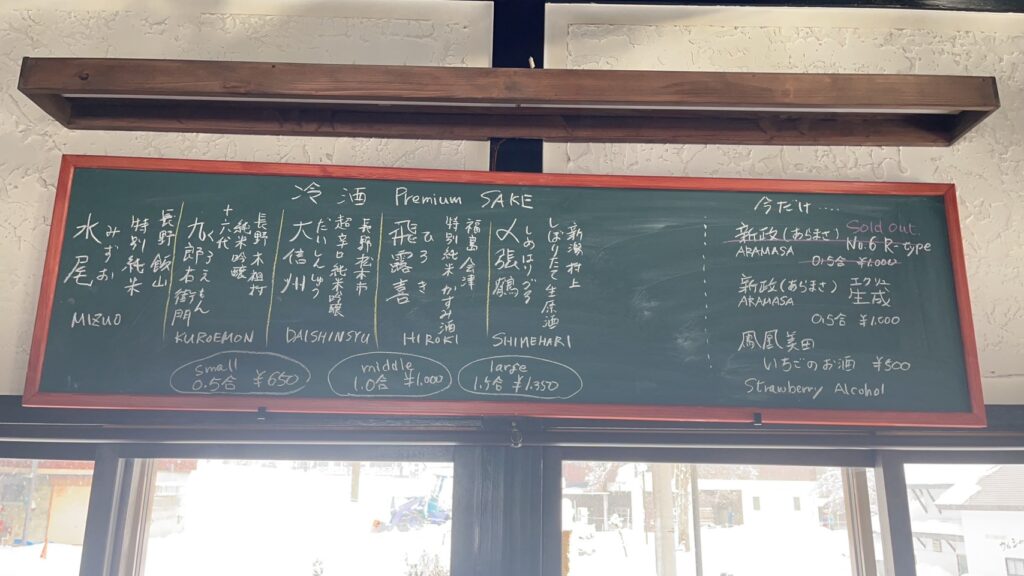 冷酒 Premium SAKE
新潟 村上
しぼりたて生原酒
しめはりづる
〆張鶴
SHIMEHARI
福島 会津
特別純米 かすみ酒
ひろき
飛露喜
HIROKI
長野 松本市
超辛口純米吟醸
だいしんしゅう
大信州
DAISHINSYU
長野 木祖村
純米吟醸
十六代
くろえもん
九郎右衛門
KUROEMON
長野 飯山
特別純米
みずお
水尾
MIZUO
small
0.5合 ¥650
middle
1.0合 ¥1,000
large
1.5合 ¥1,350
今だけ.....
Sold out
新政(あらまさ) No.6 R-type
ARAMASA
0.5合 ¥1,000
エクリュ
新政(あらまさ) 生成
ARAMASA
0.5合 ¥1,000
鳳凰美田
いちごのお酒 ¥500
Strawberry Alcohol